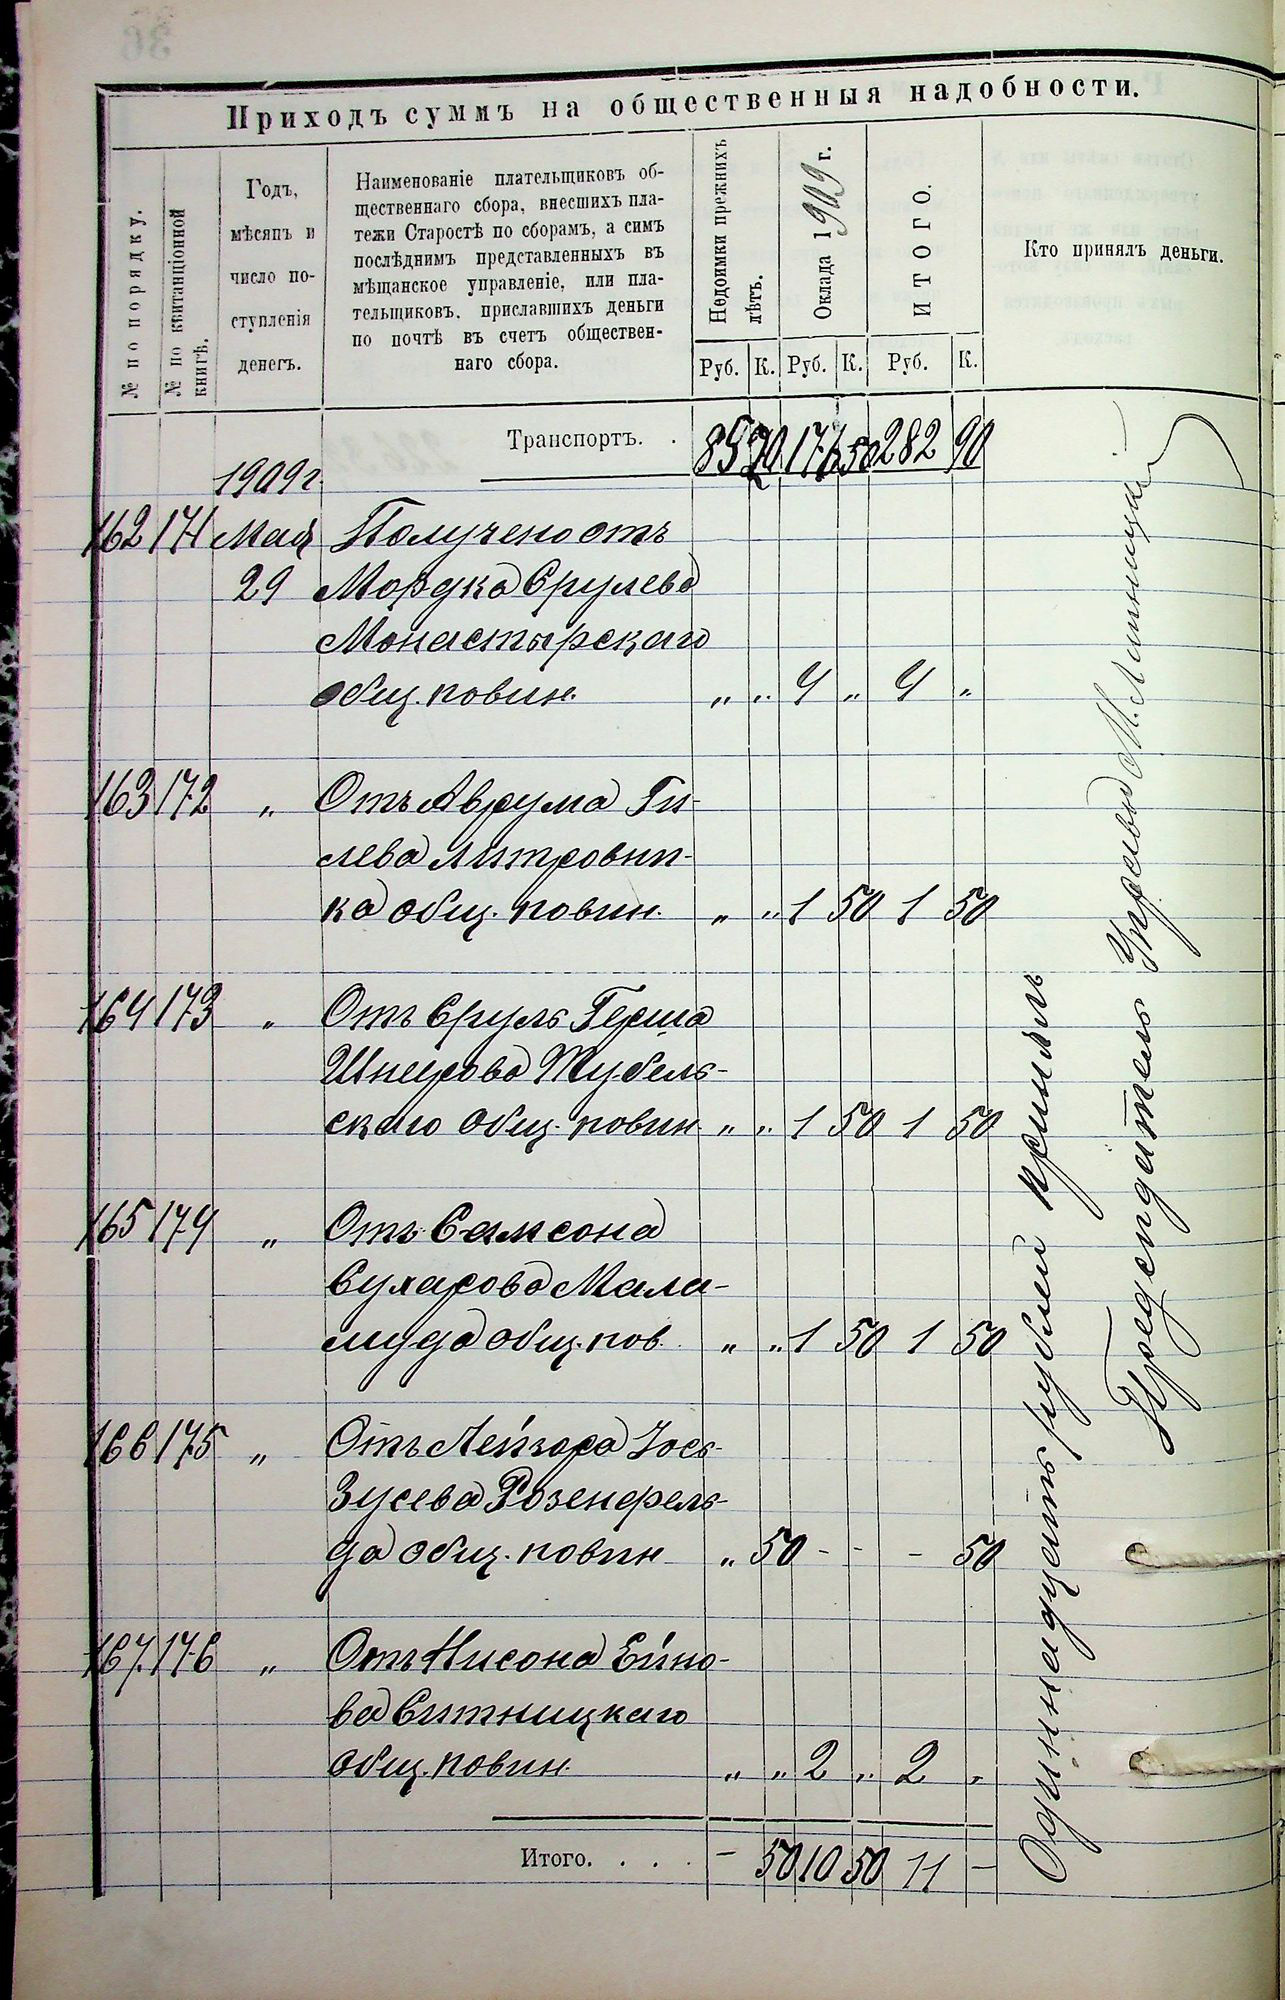 Приходъ суммъ на общественныя надобности.
№ по порядку.
№ по квитанціонной книгѣ.
Годъ,
мѣсяцъ и
число по-
ступленія
денегъ.
Наименованіе плательщиковъ об-
щественнаго сбора, внесшихъ пла-
тежи Старостѣ по сборамъ, а симъ
послѣднимъ представленныхъ въ
мѣщанское управленіе, или пла-
тельщиковъ, приславшихъ деньги
по почтѣ въ счетъ обществен-
наго сбора.
Недоимки прежнихъ лѣтъ.
Оклада 1909 г.
ИТОГО.
Кто принялъ деньги.
Руб. К. Руб. К. Руб. К.
Транспортъ. . 176 50 282 90
1909 г.
162 171 Мая Получено отъ
29 Мордка Срулева
Монастырскаго
общ. повин. „ „ 4 „ 4 „
163 172 „ Отъ Аврума Ги-
лева Литровни-
ка общ. повин. „ „ 1 50 1 50
164 173 „ Отъ Сруль Герша
Шнеерова
скаго общ. повин. „ „ 1 50 1 50
165 174 „ Отъ Самсона
Сухарова Мала-
муда общ. пов. „ „ 1 50 1 50
166 175 „ Отъ Лейзора Іось
Зусева Розенфель-
да общ. повин „ 50 - - - 50
167 176 „ Отъ Нисона Ейно-
ва Ситницкаго
общ. повин. „ „ 2 „ 2 „
Итого. . . . - 50 10 50 11 -
Одиннадцать рублей принялъ
Предсѣдатель Управы